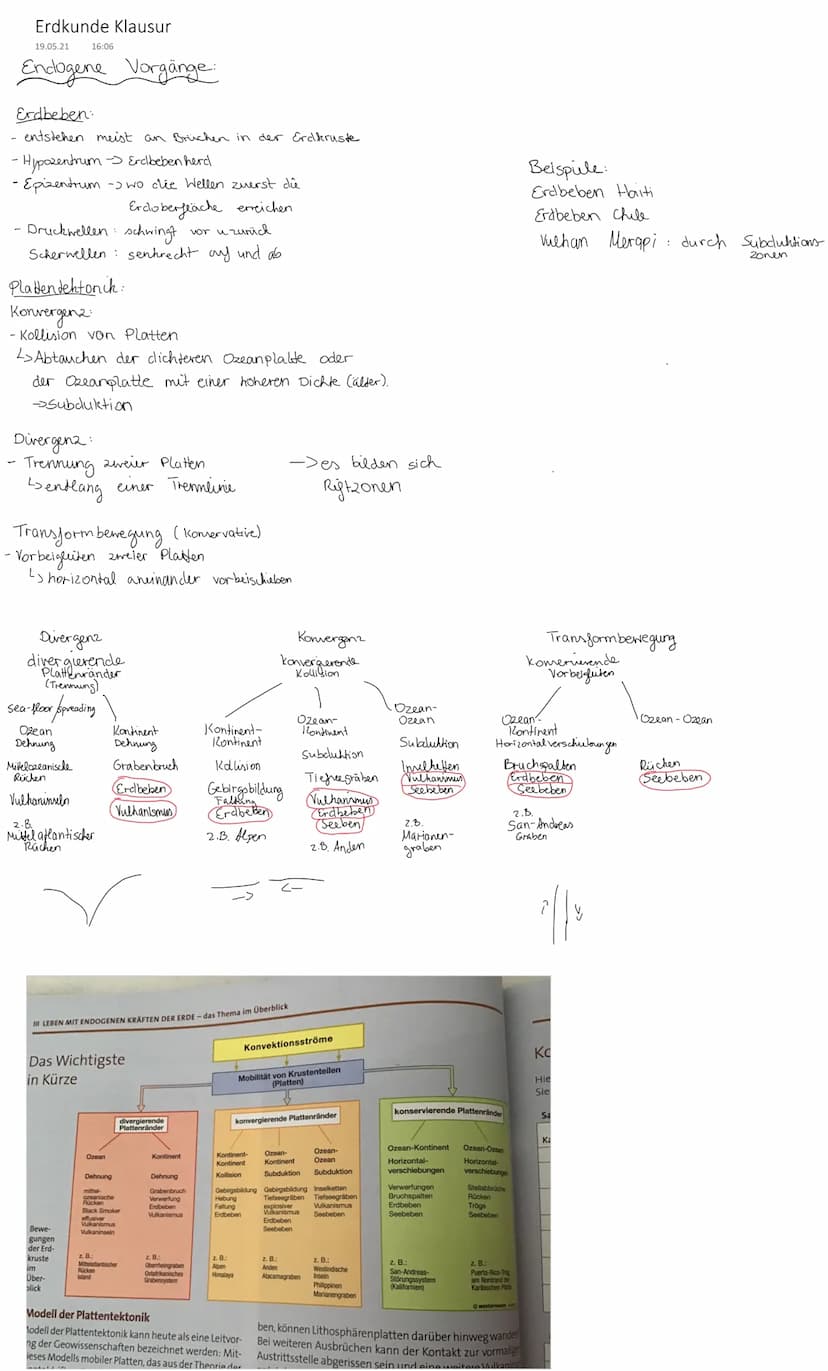 Erdkunde Klausur
19.05.21 16:06
Endogene Vorgänge:
Erdbeben:
- entstehen meist an Brüchen in der Erdkruste
- Hypozentrum -> Erdbebenherd
- Epizentrum -> wo die Wellen zuerst die
Erdoberfläche erreichen
- Druckwellen: schwingt vor u zurück
Scherwellen: senkrecht auf und ab
Beispiele:
Erdbeben Haiti
Erdbeben Chile
Vulkan Merapi: durch Subduktions
zonen
Plattentektonik:
Konvergenz:
- Kollision von Platten
↳ Abtauchen der dichteren Ozeanplatte oder
der Ozeanplatte mit einer höheren Dichte (älter).
-> Subduktion
Divergenz:
- Trennung zweier Platten
↳ entlang einer Trennlinie
-> es bilden sich
Riftzonen
Transformbewegung (Konservative)
- Vorbeigleiten zweier Platten
↳ horizontal aneinander vorbeischieben
Divergenz
divergierende
Plattenränder
(Trennung)
sea-floor spreading
Ozean
Dehnung
Mittelozeanische
Rücken
Vulkaninseln
z.B.
Mittelatlantischer
Rücken
Kontinent
Dehnung
Grabenbruch
Erdbeben
Vulkanismus
Konvergenz
konvergierende
Kollision
Kontinent-
Kontinent
Kollision
Gebirgsbildung
Faltung
Erdbeben
z.B. Alpen
Ozean-
Kontinent
Subduktion
Tiefseegräben
Vulkanismus
Erdbeben
Seeben
z.B. Anden
Ozean-
Ozean
Subduktion
Inselketten
Vulkanismus
Seebeben
z.B.
Marianen-
graben
Transformbewegung
konservierende
Vorbeigleiten
Ozean-
Kontinent
Horizontalverschiebungen
Bruchspalten
Erdbeben
Seebeben
z.B.
San-Andreas
Graben
Ozean-Ozean
Rücken
Seebeben
III LEBEN MIT ENDOGENEN KRÄFTEN DER ERDE – das Thema im Überblick
Das Wichtigste
in Kürze
Konvektionsströme
Mobilität von Krustenteilen
(Platten)
divergierende
Plattenränder
Ozean
Dehnung
mittel-
ozeanische
Rücken
Black Smoker
effusiver
Vulkanismus
Vulkaninseln
z. B.:
Mittelatlantischer
Rücken
Island
Kontinent
Dehnung
Grabenbruch
Verwerfung
Erdbeben
Vulkanismus
z. B.:
Oberrheingraben
Ostafrikanisches
Grabensystem
konvergierende Plattenränder
Kontinent-
Kontinent
Kollision
Gebirgsbildung
Hebung
Faltung
Erdbeben
z. B.:
Alpen
Himalaya
Ozean-
Kontinent
Subduktion
Gebirgsbildung
Tiefseegräben
explosiver
Vulkanismus
Erdbeben
Seebeben
z. B.:
Anden
Atacamagraben
Ozean-
Ozean
Subduktion
Inselketten
Tiefseegräben
Vulkanismus
Seebeben
z. B.:
Westindische
Inseln
Philippinen
Marianengraben
konservierende Plattenränder
Ozean-Kontinent
Horizontal-
verschiebungen
Verwerfungen
Bruchspalten
Erdbeben
Seebeben
z. B.:
San-Andreas-
Störungssystem
(Kalifornien)
Ozean-Ozean
Horizontal-
verschiebungen
Steilabbrüche
Rücken
Tröge
Seebeben
z. B.:
Puerto-Rico-Trog
am Nordrand der
Karibischen Platte
© westermann
Bewe-
gungen
der Erd-
kruste
im
Über-
blick
Modell der Plattentektonik
Modell der Plattentektonik kann heute als eine Leitvor-
ng der Geowissenschaften bezeichnet werden: Mit-
ieses Modells mobiler Platten, das aus der Theorie der
ben, können Lithosphärenplatten darüber hinweg wande
Bei weiteren Ausbrüchen kann der Kontakt zur vormalig
Austrittsstelle abgerissen sein und eine weitere
Ko
Hie
Sie